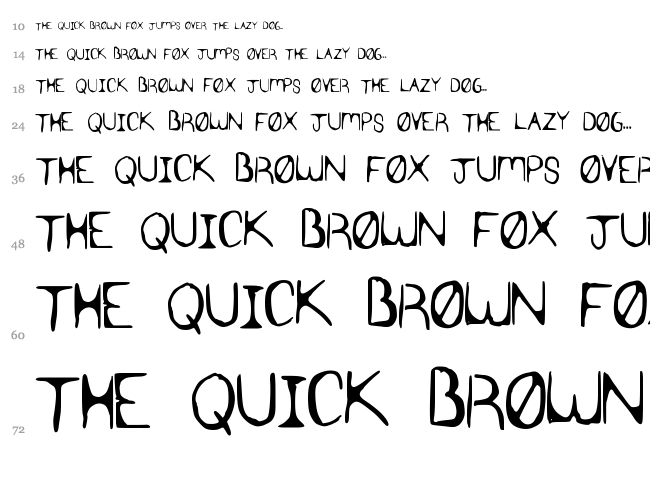 10 THE QUICK BRØWN FØX JUMPS ØVER THE LAZY DØG..
14 THE QUICK BRØWN FØX JUMPS ØVER THE LAZY DØG..
18 THE QUICK BRØWN FØX JUMPS ØVER THE LAZY DØG..
24 THE QUICK BRØWN FØX JUMPS ØVER THE LAZY DØG...
36 THE QUICK BRØWN FØX JUMPS ØVER
48 THE QUICK BRØWN FØX JU
60 THE QUICK BRØWN FØ
72 THE QUICK BRØWN